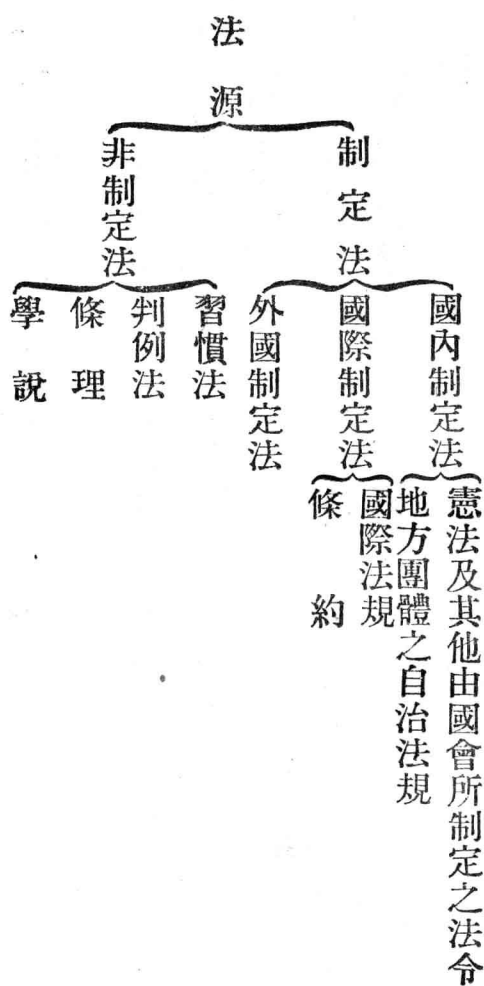 法源
制定法
國內制定法
憲法及其他由國會所制定之法令
地方團體之自治法規
國際制定法
國際法規
條約
外國制定法
非制定法
習慣法
判例法
條理
學說